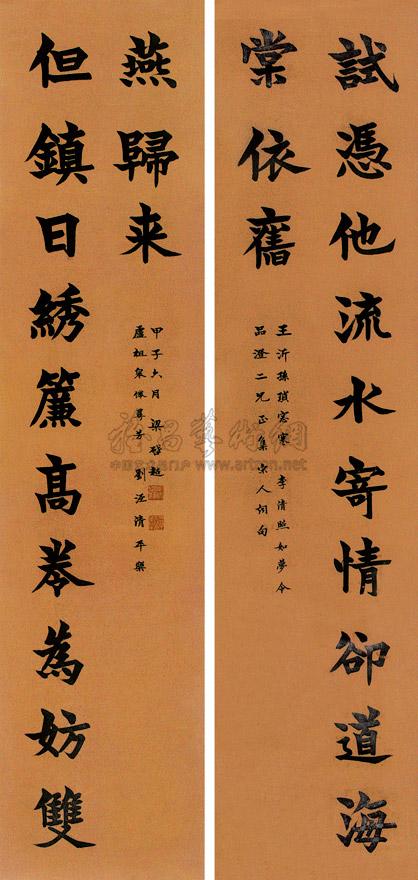 試憑他流水寄情卻道海
棠依舊
王沂孫瑣窓寒 李清照如夢令
品澄二兄正集宋人詞句
但鎮日綉簾高卷為妨雙
燕歸来
盧祖皋倦尋芳 劉涇清平樂
甲子六月 梁啟超
雅昌藝術網
www.artron.net